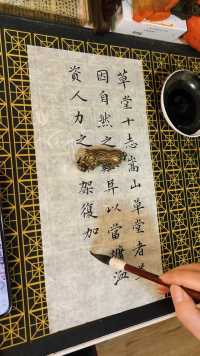 草堂十志嵩山草堂者
因自然之阜以當墉洫
資人力之架復加